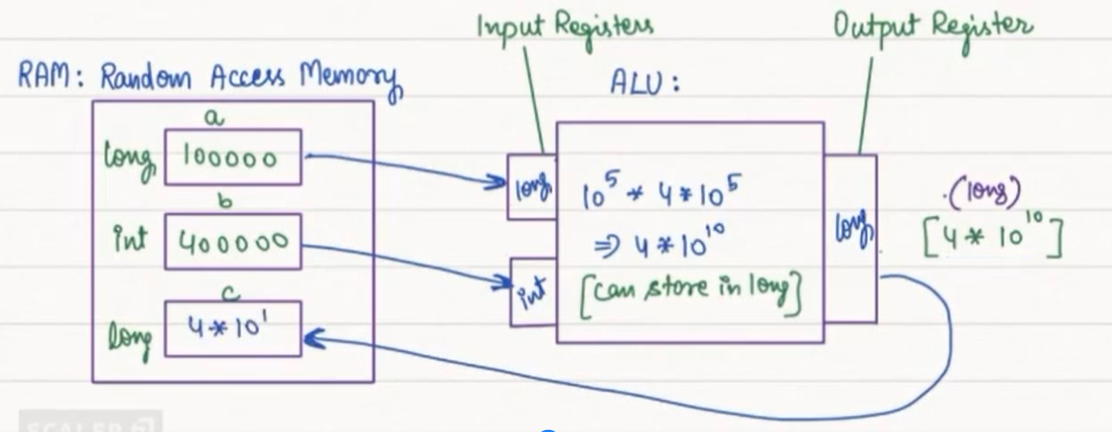 Input Registers
Output Register
RAM: Random Access Memory
ALU:
a
long 100000
b
int 400000
c
long 4*10'
long
int
10^5 * 4*10^5
⇒ 4*10^10
[can store in long]
long
(long)
[4*10^10]
SCALER